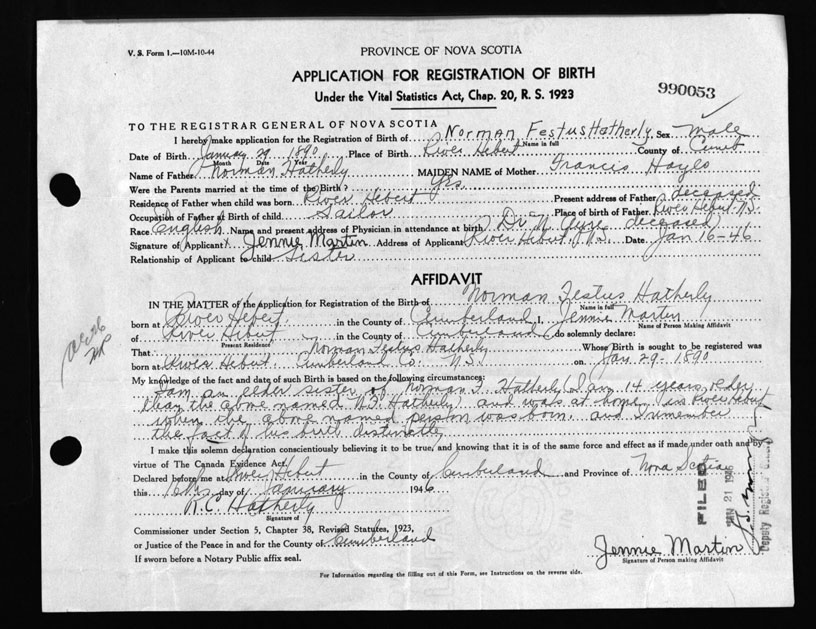 V. S. Form 1.—10M-10-44
PROVINCE OF NOVA SCOTIA
APPLICATION FOR REGISTRATION OF BIRTH
Under the Vital Statistics Act, Chap. 20, R. S. 1923
990053
TO THE REGISTRAR GENERAL OF NOVA SCOTIA
I hereby make application for the Registration of Birth of Norman Festus Hatherly Sex Male
Name in full
Date of Birth January 29 1890 Place of Birth River Hebert County of Cumb
Month Date Year
Name of Father Norman Hatherly MAIDEN NAME of Mother Francis Hayes
Were the Parents married at the time of the Birth? Yes
Residence of Father when child was born River Hebert Present address of Father deceased
Occupation of Father at Birth of child Sailor Place of birth of Father River Hebert N.S.
Race English Name and present address of Physician in attendance at birth Dr deceased
Signature of Applicant Jennie Martin Address of Applicant River Hebert N.S. Date Jan 16-46
Relationship of Applicant to child Sister
AFFIDAVIT
IN THE MATTER of the Application for Registration of the Birth of Norman Festus Hatherly
Name in full
born at River Hebert in the County of Cumberland I, Jennie Martin
Name of Person Making Affidavit
of River Hebert in the County of Cumberland do solemnly declare:
Present Residence
That Norman Festus Hatherly Whose Birth is sought to be registered was
born at River Hebert Cumberland Co. N.S. on Jan 29-1890
My knowledge of the fact and date of such Birth is based on the following circumstances:
I am an elder sister of Norman F. Hatherly I am 14 years older
than the above named N.F. Hatherly and was at home in River Hebert
when the above named person was born. and I remember
the fact of his birth distinctly
I make this solemn declaration conscientiously believing it to be true, and knowing that it is of the same force and effect as if made under oath and by
virtue of The Canada Evidence Act.
Declared before me at River Hebert in the County of Cumberland and Province of Nova Scotia
this 16th day of January 1946
R.C. Hatherly
Signature of
Commissioner under Section 5, Chapter 38, Revised Statutes, 1923,
or Justice of the Peace in and for the County of Cumberland
If sworn before a Notary Public affix seal.
Jennie Martin
Signature of Person making Affidavit
FILED
JAN 21 1946
Deputy Registrar
For Information regarding the filling out of this Form, see Instructions on the reverse side.